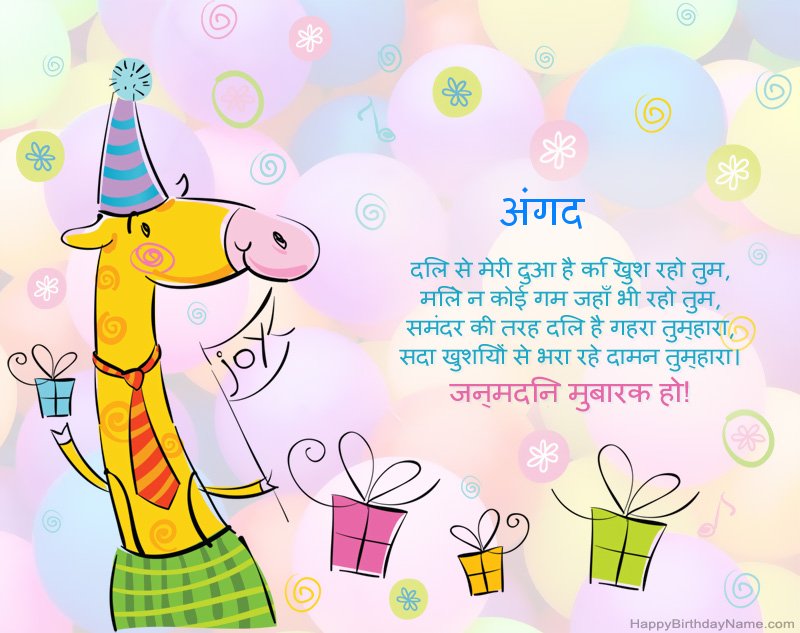 अंगद
दिल से मेरी दुआ है कि खुश रहो तुम,
मिले न कोई गम जहाँ भी रहो तुम,
समंदर की तरह दिल है गहरा तुम्हारा,
सदा खुशियों से भरा रहे दामन तुम्हारा।
जन्मदिन मुबारक हो!
joy
HappyBirthdayName.com